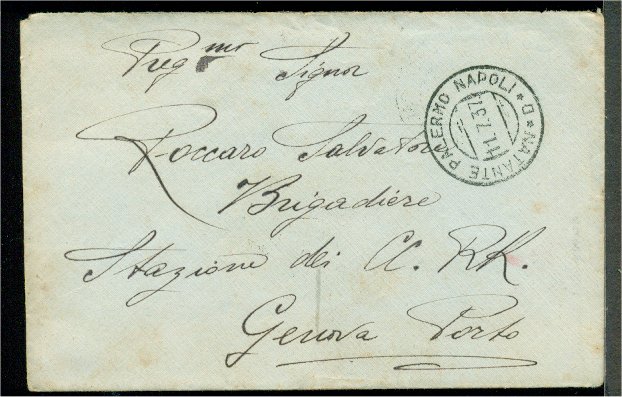 Preg.mo Signor
Roccaro Salvatore
Brigadiere
Stazione dei CC. RR.
Genova Porto
NATANTE PALERMO NAPOLI * D *
11.7.37